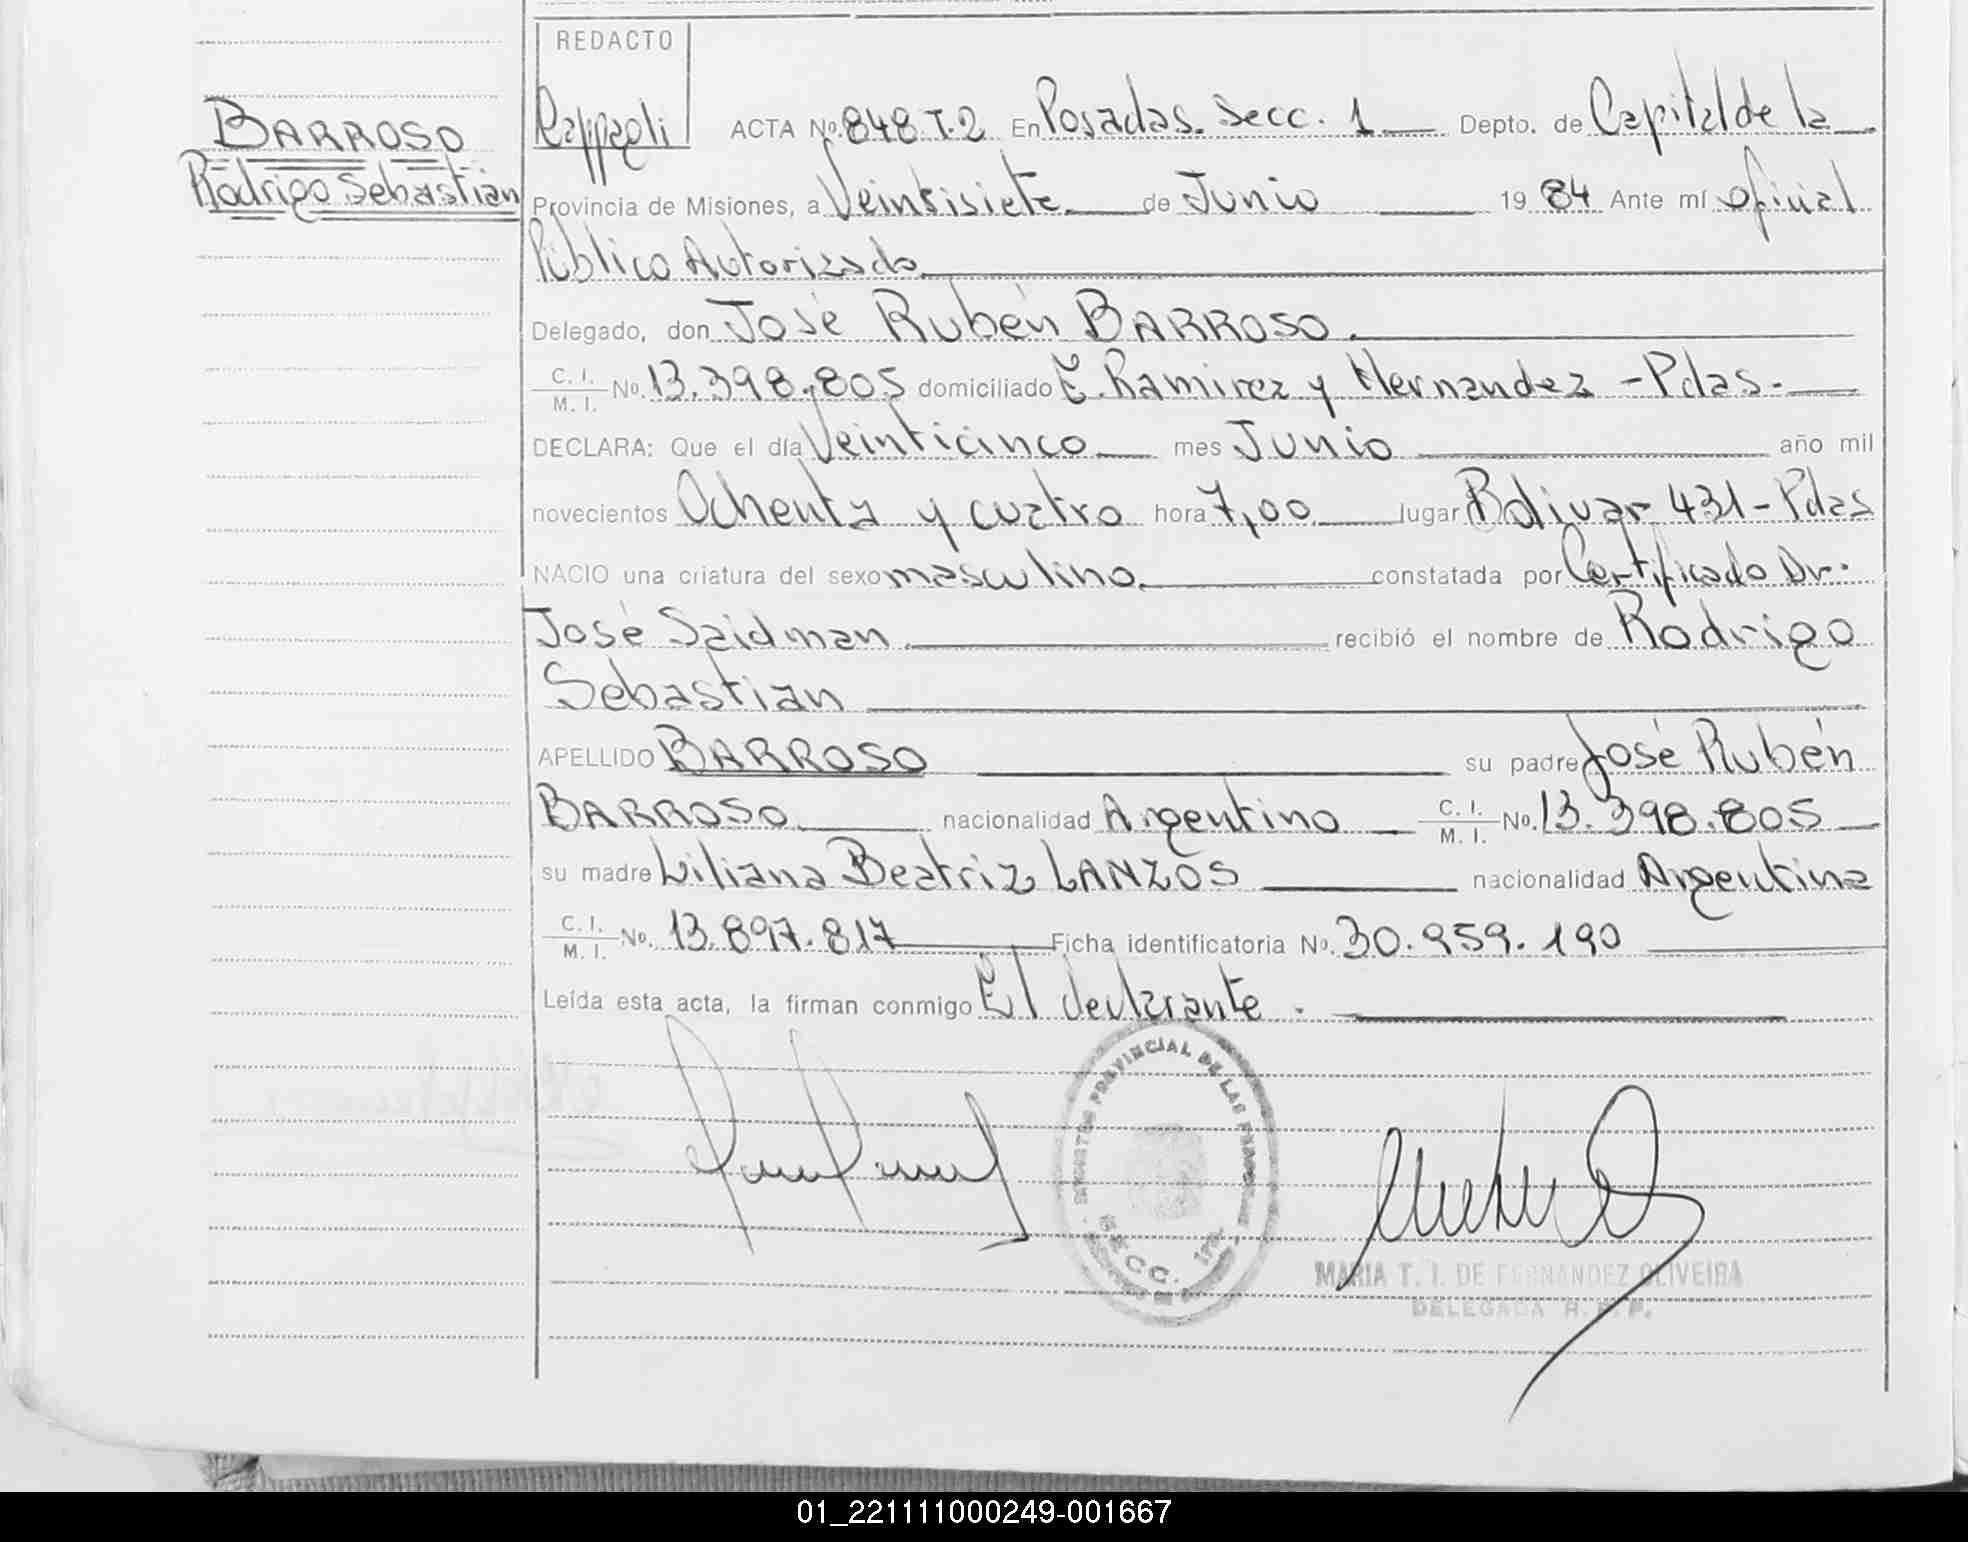 REDACTO
BARROSO
Rodrigo Sebastián
ACTA No. 848 T.2 En Posadas. Secc. 1 Depto. de Capital de la
Provincia de Misiones, a Veintisiete de Junio 19 84 Ante mí Oficial
Público Autorizado
Delegado, don José Rubén BARROSO.
C. I. / M. I. No. 13.398.805 domiciliado E. Ramirez y Hernandez - Pdas.
DECLARA: Que el día Veinticinco mes Junio año mil
novecientos Ochenta y cuatro hora 7,00 lugar Bolivar 431 - Pdas
NACIO una criatura del sexo masculino constatada por Certificado Dr.
José Saidman recibió el nombre de Rodrigo
Sebastián
APELLIDO BARROSO su padre José Rubén
BARROSO nacionalidad Argentino C. I. / M. I. No. 13.398.805
su madre Liliana Beatriz LANZÓS nacionalidad Argentina
C. I. / M. I. No. 13.897.817 Ficha identificatoria No. 30.959.190
Leída esta acta, la firman conmigo El declarante.
PROVINCIAL DE LAS PERSONAS
SECC. 1ra.
MARIA T. I. DE FERNANDEZ OLIVEIRA
DELEGADA R. P. P.
01_221111000249-001667